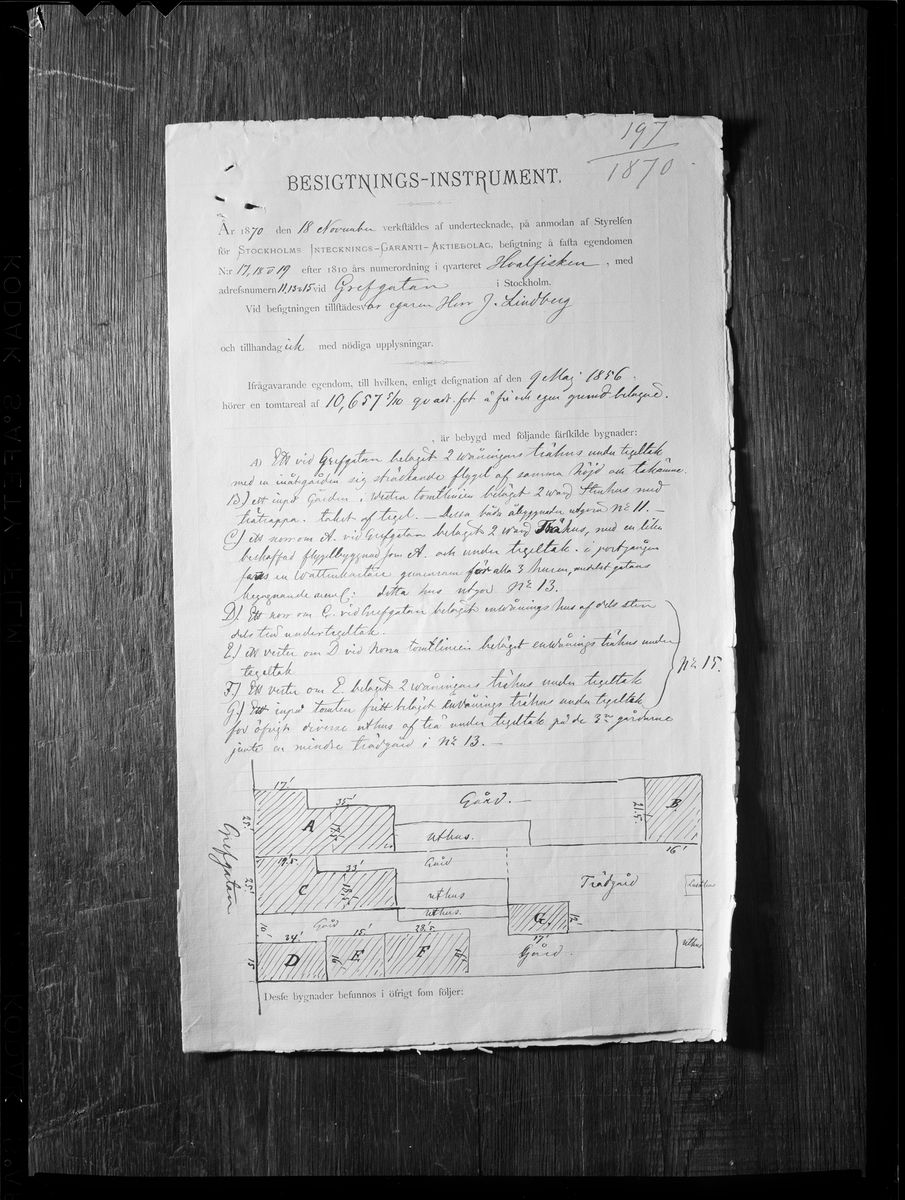 197
1870
BESIGTNINGS-INSTRUMENT.
År 1870 den 18 November verkställdes af undertecknade, på anmodan af Styrelsen
för STOCKHOLMS INTECKNINGS-GARANTI-AKTIEBOLAG, besigtning å fasta egendomen
N:r 17, 18 o 19 efter 1810 års numerordning i qvarteret Hvalfisken, med
adressnumern 11, 13 o 15 vid Grefgatan i Stockholm.
Vid besigtningen tillstädesvar egaren Herr J. Lindberg
och tillhandagick med nödiga upplysningar.
Ifrågavarande egendom, till hvilken, enligt designation af den 9 Maj 1856
hörer en tomtareal af 10,657 5/10 qvadt. fot å fri och egen grund belägne.
, är bebygd med följande särskilde bygnader:
A) Ett vid Grefgatan beläget 2 wånings trähus under tegeltak
med en inåt gården sig sträckande flygel af samma höjd och takämne.
B) ett inpå Gården i westra tomtlinien beläget 2 wånd Stenhus med
trätrappa. taket af tegel. – Dessa båda åbyggnader utgöra No 11. –
C) ett norr om A. vid Grefgatan beläget 2 wånd Trähus, med en lika
beskaffad flygelbyggnad som A. och under tegeltak. i portgången
finnes en Wattenkastare gemensam för alla 3 husen,
begagnande detta hus utgör No 13.
D). Ett norr om C. vid Grefgatan beläget enwånings hus af dels sten
dels trä under tegeltak.
E.) ett vester om D vid Norra tomtlinien beläget enwånings trähus under
tegeltak
F.) Ett vester om E beläget 2 wånings trähus under tegeltak
G.) Ett inpå tomten fritt beläget enwånings trähus under tegeltak
No 15.
för öfrigt diverse uthus af trä under tegeltak på de 3ne gårdarne
jemte en mindre Trädgård i No 13. –
17'
35'
Gård. –
25'
A
17,5
21.5
B.
uthus.
Grefgatan
19'.5
33'
Gård
16'
25'
C
18,5
uthus
Trädgård
uthus.
10'
Gård
G.
12
24'
15'
28'.5
17'
15
D
16'
E
F
16'
Gård.
uthus
Desse bygnader befunnos i öfrigt som följer:
KODAK SAFETY FILM
KODAK